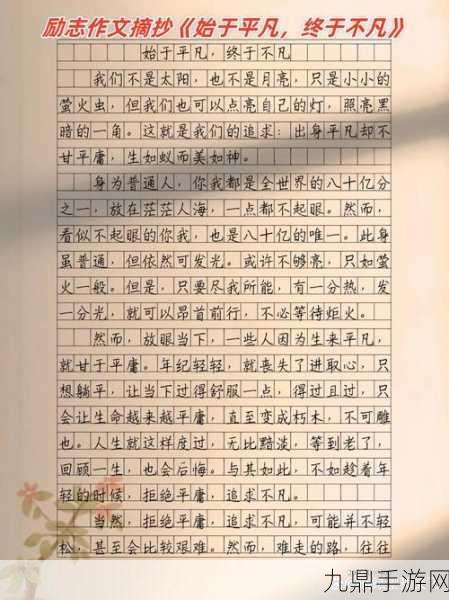 励志作文摘抄《始于平凡，终于不凡》
始于平凡，终于不凡
我们不是太阳，也不是月亮，只是小小的
萤火虫，但我们也可以点亮自己的灯，照亮黑
暗的一角。这就是我们的追求：出身平凡却不
甘平庸，生如蚁而美如神。
身为普通人，你我都是全世界的八十亿分
之一，放在茫茫人海，一点都不起眼。然而，
看似不起眼的你我，也是八十亿的唯一。此身
虽普通，但依然可发光。或许不够亮，只如萤
火一般。但是，只要尽我所能，有一分热，发
一分光，就可以昂首前行，不必等待炬火。
然而，放眼当下，一些人因为生来平凡，
就甘于平庸。年纪轻轻，就丧失了进取心，只
想躺平，让当下过得舒服一点，得过且过，只
会让生命越来越平庸，直至变成朽木，不可雕
也。人生就这样度过，无比黯淡，等到老了，
回顾一生，也会后悔。与其如此，不如趁着年
轻的时候，拒绝平庸，追求不凡。
当然，拒绝平庸，追求不凡，可能并不轻
松，甚至会比较艰难。然而，难走的路，往往
九鼎手游网